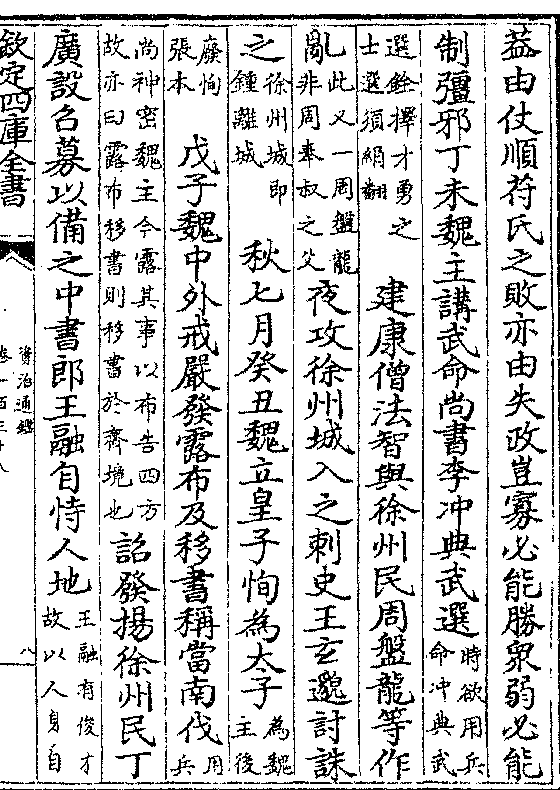 葢由仗順苻氏之敗亦由失政豈寡必能勝衆弱必能
制彊邪丁未魏主講武命尚書李冲典武選
時欲用兵
命冲典武
選銓擇才勇之
士選須絹翻
建康僧法智與徐州民周盤龍等作
亂
此又一周盤龍
非周奉叔之父
夜攻徐州城入之刺史王玄邈討誅
之
徐州城即
鍾離城
秋七月癸丑魏立皇子恂為太子
為魏
主後
廢恂
張本
戊子魏中外戒嚴發露布及移書稱當南伐
用
兵
尚神密魏主今露其事以布告四方
故亦曰露布移書則移書於齊境也
詔發揚徐州民丁
廣設召募以備之中書郎王融自恃人地
王融有俊才
故以人身自
欽定四庫全書
資治通鑑
卷一百三十八
八